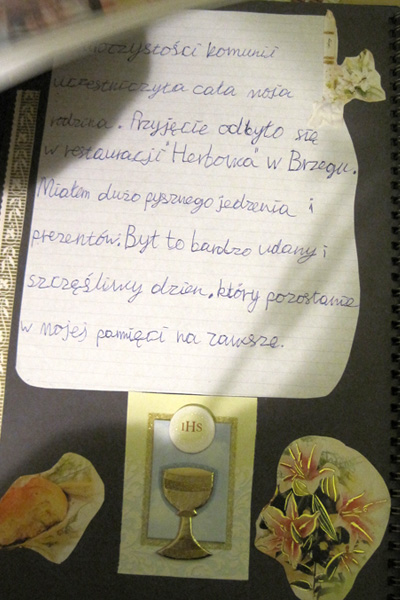 uroczystości komunii
uczestniczyła cała moja
rodzina. Przyjęcie odbyło się
w restauracji "Herbowa w Brzegu.
Miałem dużo pysznego jedzenia i
prezentów. Był to bardzo udany i
szczęśliwy dzień, który pozostanie
w mojej pamięci na zawsze.
IHS